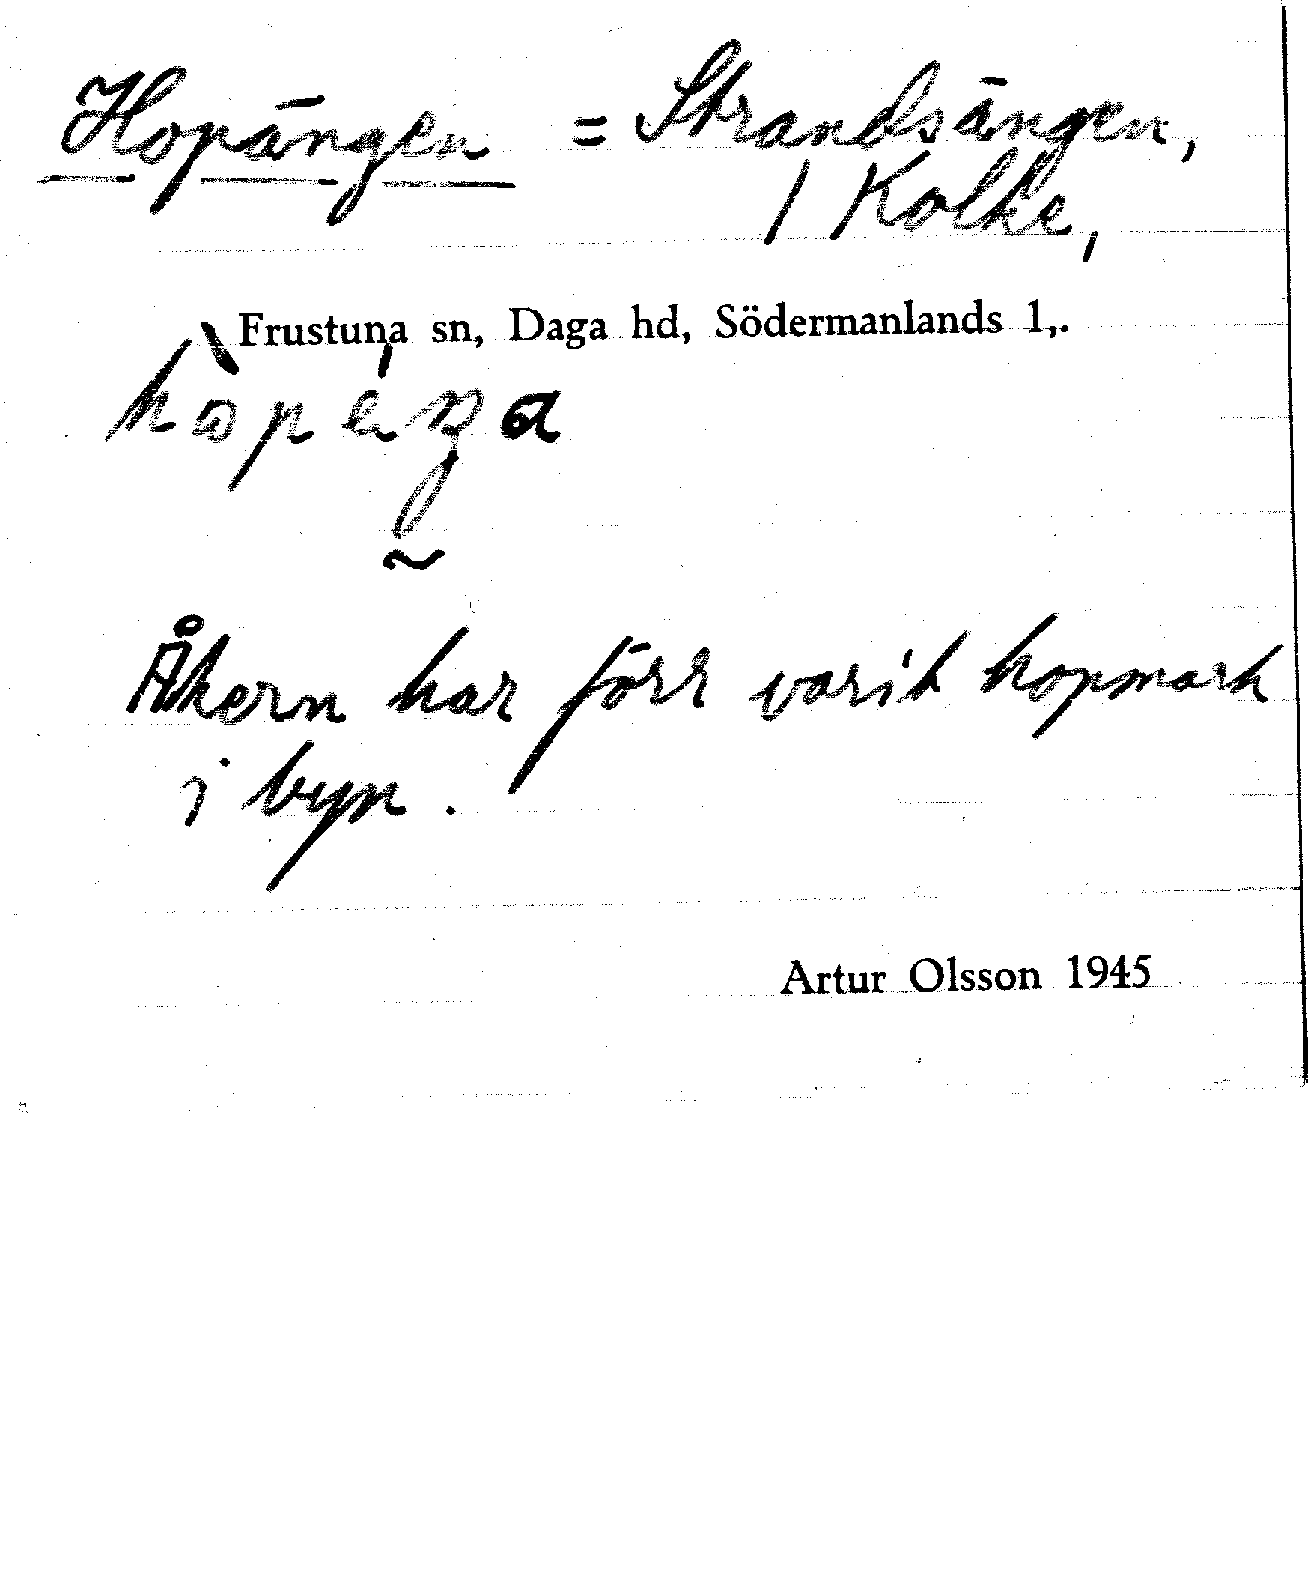 Hopängen = Strandsängen,
/ Kolke,
Frustuna sn, Daga hd, Södermanlands l,.
Åkern har förr varit hopmark
i byn.
Artur Olsson 1945